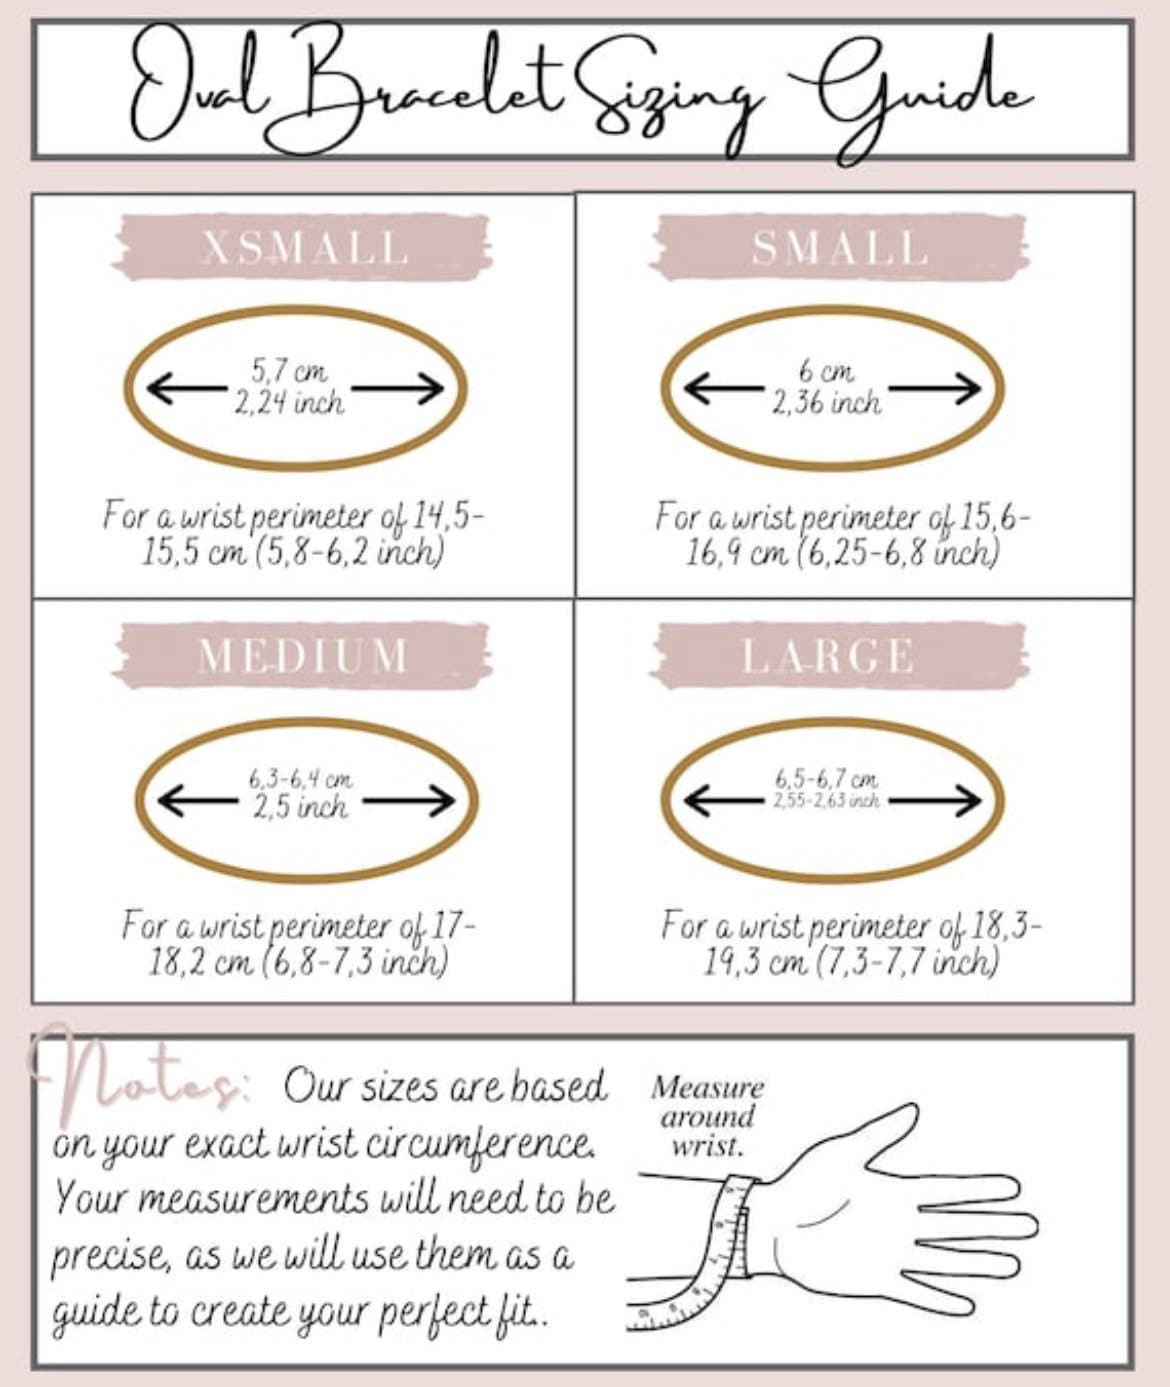 Oval Bracelet Sizing Guide
XSMALL
5,7 cm
2,24 inch
For a wrist perimeter of 14,5-
15,5 cm (5,8-6,2 inch)
SMALL
6 cm
2,36 inch
For a wrist perimeter of 15,6-
16,9 cm (6,25-6,8 inch)
MEDIUM
6,3-6,4 cm
2,5 inch
For a wrist perimeter of 17-
18,2 cm (6,8-7,3 inch)
LARGE
6,5-6,7 cm
2,55-2,63 inch
For a wrist perimeter of 18,3-
19,3 cm (7,3-7,7 inch)
Notes: Our sizes are based
on your exact wrist circumference.
Your measurements will need to be
precise, as we will use them as a
guide to create your perfect fit..
Measure
around
wrist.